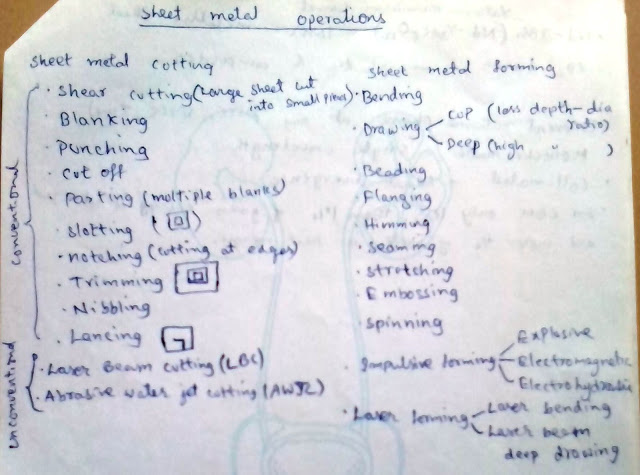 sheet metal operations
sheet metal cutting
Conventional
· shear cutting (Large sheet cut into small pieces)
· Blanking
· Punching
· cut off
· Parting (multiple blanks)
· slotting ( )
· notching (cutting at edges)
· Trimming
· Nibbling
· Lancing
Unconventional
· Laser Beam cutting (LBC)
· Abrasive water jet cutting (AWJC)
sheet metal forming
· Bending
· Drawing
CUP (loss depth-dia ratio)
Deep (high " )
· Beading
· Flanging
· Himming
· Seaming
· stretching
· Embossing
· spinning
· Impulsive forming
Explosive
Electromagnetic
Electrohydraulic
· Laser forming
Laser bending
Laser beam
deep drawing